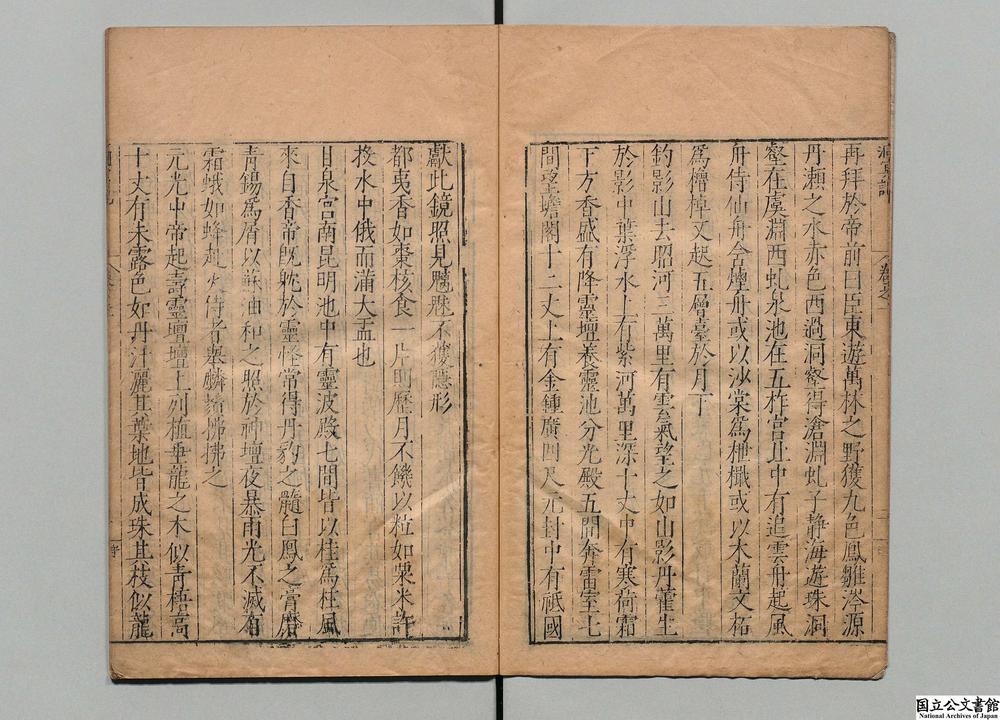 再拜於帝前曰臣東遊萬林之野獲九色鳳雛涔源
丹瀨之水赤色西過洞壑得滄淵虬子靜海遊珠洞
壑在虞淵西虬泉池在五柞宮北中有追雲舟起風
舟侍仙舟含煙舟或以沙棠爲枻檝或以木蘭文柘
爲櫓棹又起五層臺於月下
釣影山去昭河三萬里有雲氣望之如山影丹藿生
於影中葉浮水上有紫河萬里深十丈中有寒荷霜
下方香盛有降靈壇養靈池分光殿五間奔雷室七
間望蟾閣十二丈上有金鏡廣四尺元封中有祗國
獻此鏡照見魑魅不獲隱形
都夷香如棗核食一片則歷月不饑以粒如粟米許
投水中俄而滿大盂也
甘泉宮南昆明池中有靈波殿七間皆以桂爲柱風
來自香帝既躭於靈怪常得丹豹之髓白鳳之膏磨
青錫爲屑以蘇油和之照於神壇夜暴雨光不滅有
霜蛾如蜂赴火侍者舉麟鬚拂拂之
元光中帝起壽靈壇壇上列植垂龍之木似青梧高
十丈有朱露色如丹汁灑其葉地皆成珠其枝似龍
国立公文書館
National Archives of Japan